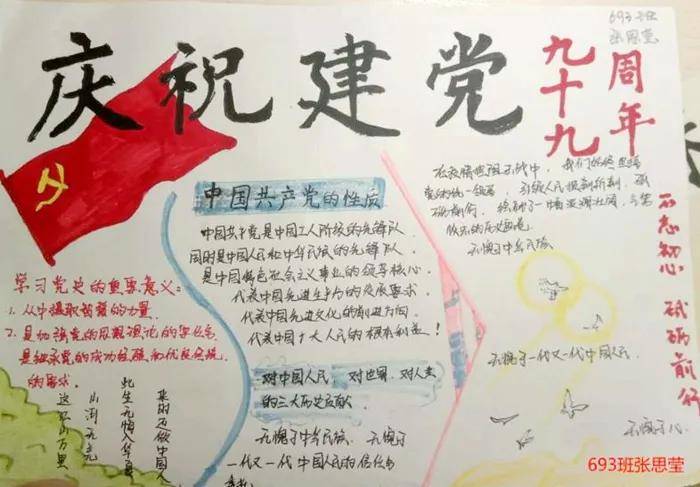 693班
张思莹
庆祝建党
九十九
周年
中国共产党的性质
中国共产党是中国工人阶级的先锋队
同时是中国人民和中华民族的先锋队
是中国特色社会主义事业的领导核心
代表中国先进生产力的发展要求
代表中国先进文化的前进方向
代表中国广大人民的根本利益！
对中国人民，对世界，对人类
的三大历史贡献
无愧于中华民族 无愧于
一代又一代中国人民的信任与
学习党史的重要意义：
1. 从中摄取智慧的力量
2. 是加强党的
的需求。
来时还做中国人
此生无悔入华夏
山河无恙
我们始终坚持
党的统一领导，引领人民
无愧于中华民族
无愧于一代又一代中国人民
无愧于
不忘初心 砥砺前行
693班张思莹